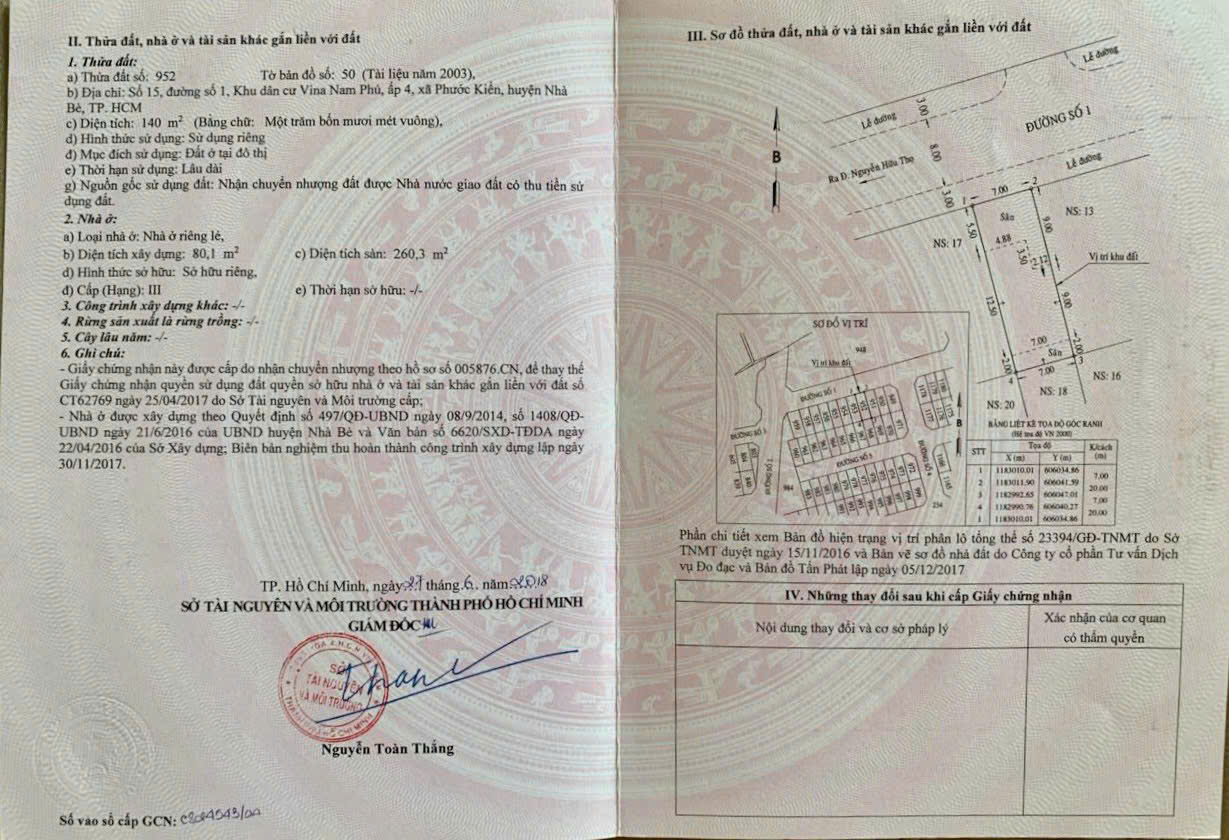 II. Thửa đất, nhà ở và tài sản khác gắn liền với đất
1. Thửa đất:
a) Thửa đất số: 952 Tờ bản đồ số: 50 (Tài liệu năm 2003),
b) Địa chỉ: Số 15, đường số 1, Khu dân cư Vina Nam Phú, ấp 4, xã Phước Kiển, huyện Nhà
Bè, TP. HCM
c) Diện tích: 140 m² (Bằng chữ: Một trăm bốn mươi mét vuông),
d) Hình thức sử dụng: Sử dụng riêng
đ) Mục đích sử dụng: Đất ở tại đô thị
e) Thời hạn sử dụng: Lâu dài
g) Nguồn gốc sử dụng đất: Nhận chuyển nhượng đất được Nhà nước giao đất có thu tiền sử
dụng đất.
2. Nhà ở:
a) Loại nhà ở: Nhà ở riêng lẻ,
b) Diện tích xây dựng: 80,1 m² c) Diện tích sàn: 260,3 m²
d) Hình thức sở hữu: Sở hữu riêng,
đ) Cấp (Hạng): III e) Thời hạn sở hữu: -/-
3. Công trình xây dựng khác: -/-
4. Rừng sản xuất là rừng trồng: -/-
5. Cây lâu năm: -/-
6. Ghi chú:
- Giấy chứng nhận này được cấp do nhận chuyển nhượng theo hồ sơ số 005876.CN, để thay thế
Giấy chứng nhận quyền sử dụng đất quyền sở hữu nhà ở và tài sản khác gắn liền với đất số
CT62769 ngày 25/04/2017 do Sở Tài nguyên và Môi trường cấp;
- Nhà ở được xây dựng theo Quyết định số 497/QĐ-UBND ngày 08/9/2014, số 1408/QĐ-
UBND ngày 21/6/2016 của UBND huyện Nhà Bè và Văn bản số 6620/SXD-TĐDA ngày
22/04/2016 của Sở Xây dựng; Biên bản nghiệm thu hoàn thành công trình xây dựng lập ngày
30/11/2017.
TP. Hồ Chí Minh, ngày 27 tháng 6. năm 2018
SỞ TÀI NGUYÊN VÀ MÔI TRƯỜNG THÀNH PHỐ HỒ CHÍ MINH
GIÁM ĐỐC
SỞ
TÀI NGUYÊN
VÀ MÔI TRƯỜNG
Nguyễn Toàn Thắng
Số vào sổ cấp GCN:
III. Sơ đồ thửa đất, nhà ở và tài sản khác gắn liền với đất
Lề đường
3.00
Lề đường
ĐƯỜNG SỐ 1
B
8.00
Ra Đ. Nguyễn Hữu Thọ
Lề đường
3.00
1
7.00
2
NS: 13
Sân
5.50
9.00
NS: 17
4.88
3.50
2.12
Vị trí khu đất
9.00
12.50
7.00
2.00
Sân
2.00
3
4
7.00
NS: 16
NS: 18
NS: 20
SƠ ĐỒ VỊ TRÍ
948
Vị trí khu đất
ĐƯỜNG SỐ 1
ĐƯỜNG SỐ 3
ĐƯỜNG SỐ 5
B
984
234
BẢNG LIỆT KÊ TỌA ĐỘ GÓC RANH
(Hệ tọa độ VN 2000)
STT Tọa độ K/cách
X (m) Y (m) (m)
1 1183010.01 606034.86
7.00
2 1183011.90 606041.59
20.00
3 1182992.65 606047.01
7.00
4 1182990.76 606040.27
20.00
1 1183010.01 606034.86
Phần chi tiết xem Bản đồ hiện trạng vị trí phân lô tổng thể số 23394/GĐ-TNMT do Sở
TNMT duyệt ngày 15/11/2016 và Bản vẽ sơ đồ nhà đất do Công ty cổ phần Tư vấn Dịch
vụ Đo đạc và Bản đồ Tấn Phát lập ngày 05/12/2017
IV. Những thay đổi sau khi cấp Giấy chứng nhận
Nội dung thay đổi và cơ sở pháp lý
Xác nhận của cơ quan
có thẩm quyền